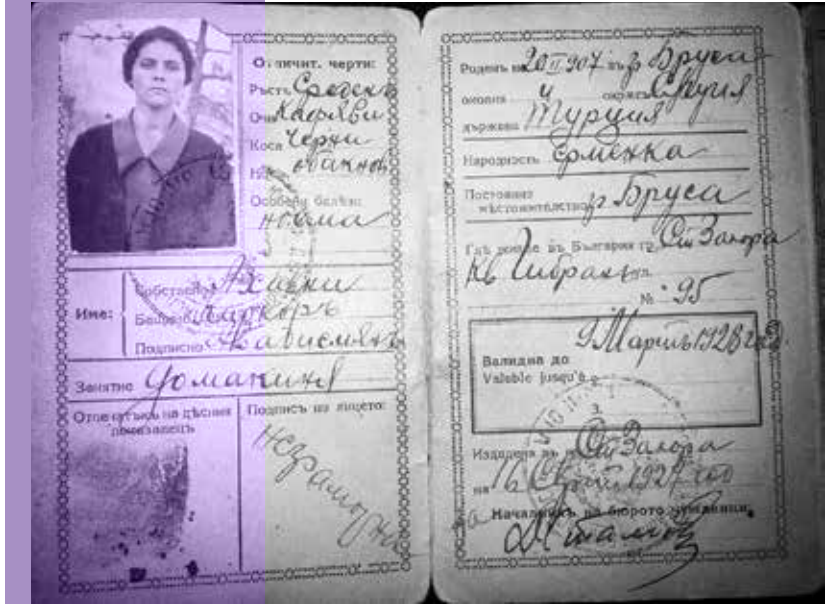 Отличит. черти:
Ръстъ Среденъ
Очи Кафяви
Коса Черни
Особени белѣзи:
нѣма
Име:
Собствено
Бащино
Подписно
Занятие Домакиня
Отпечатъкъ на дѣсния показалецъ
Подпись на лицето:
неграмотна
Роденъ на 20 II 907 въ гр Бруса
околия и окръгъ
държава Турция
Народность Ерменка
Постоянно
мѣстожителство гр Бруса
Гдѣ живѣе въ България гр. Ст Загора
ул.
№ 95
9 Мартъ 1928 год
Валидна до
Valable jusqu'à
3.
Издадена въ Ст Загора
на 16 1927 год
Началникъ на бюрото чужденци,